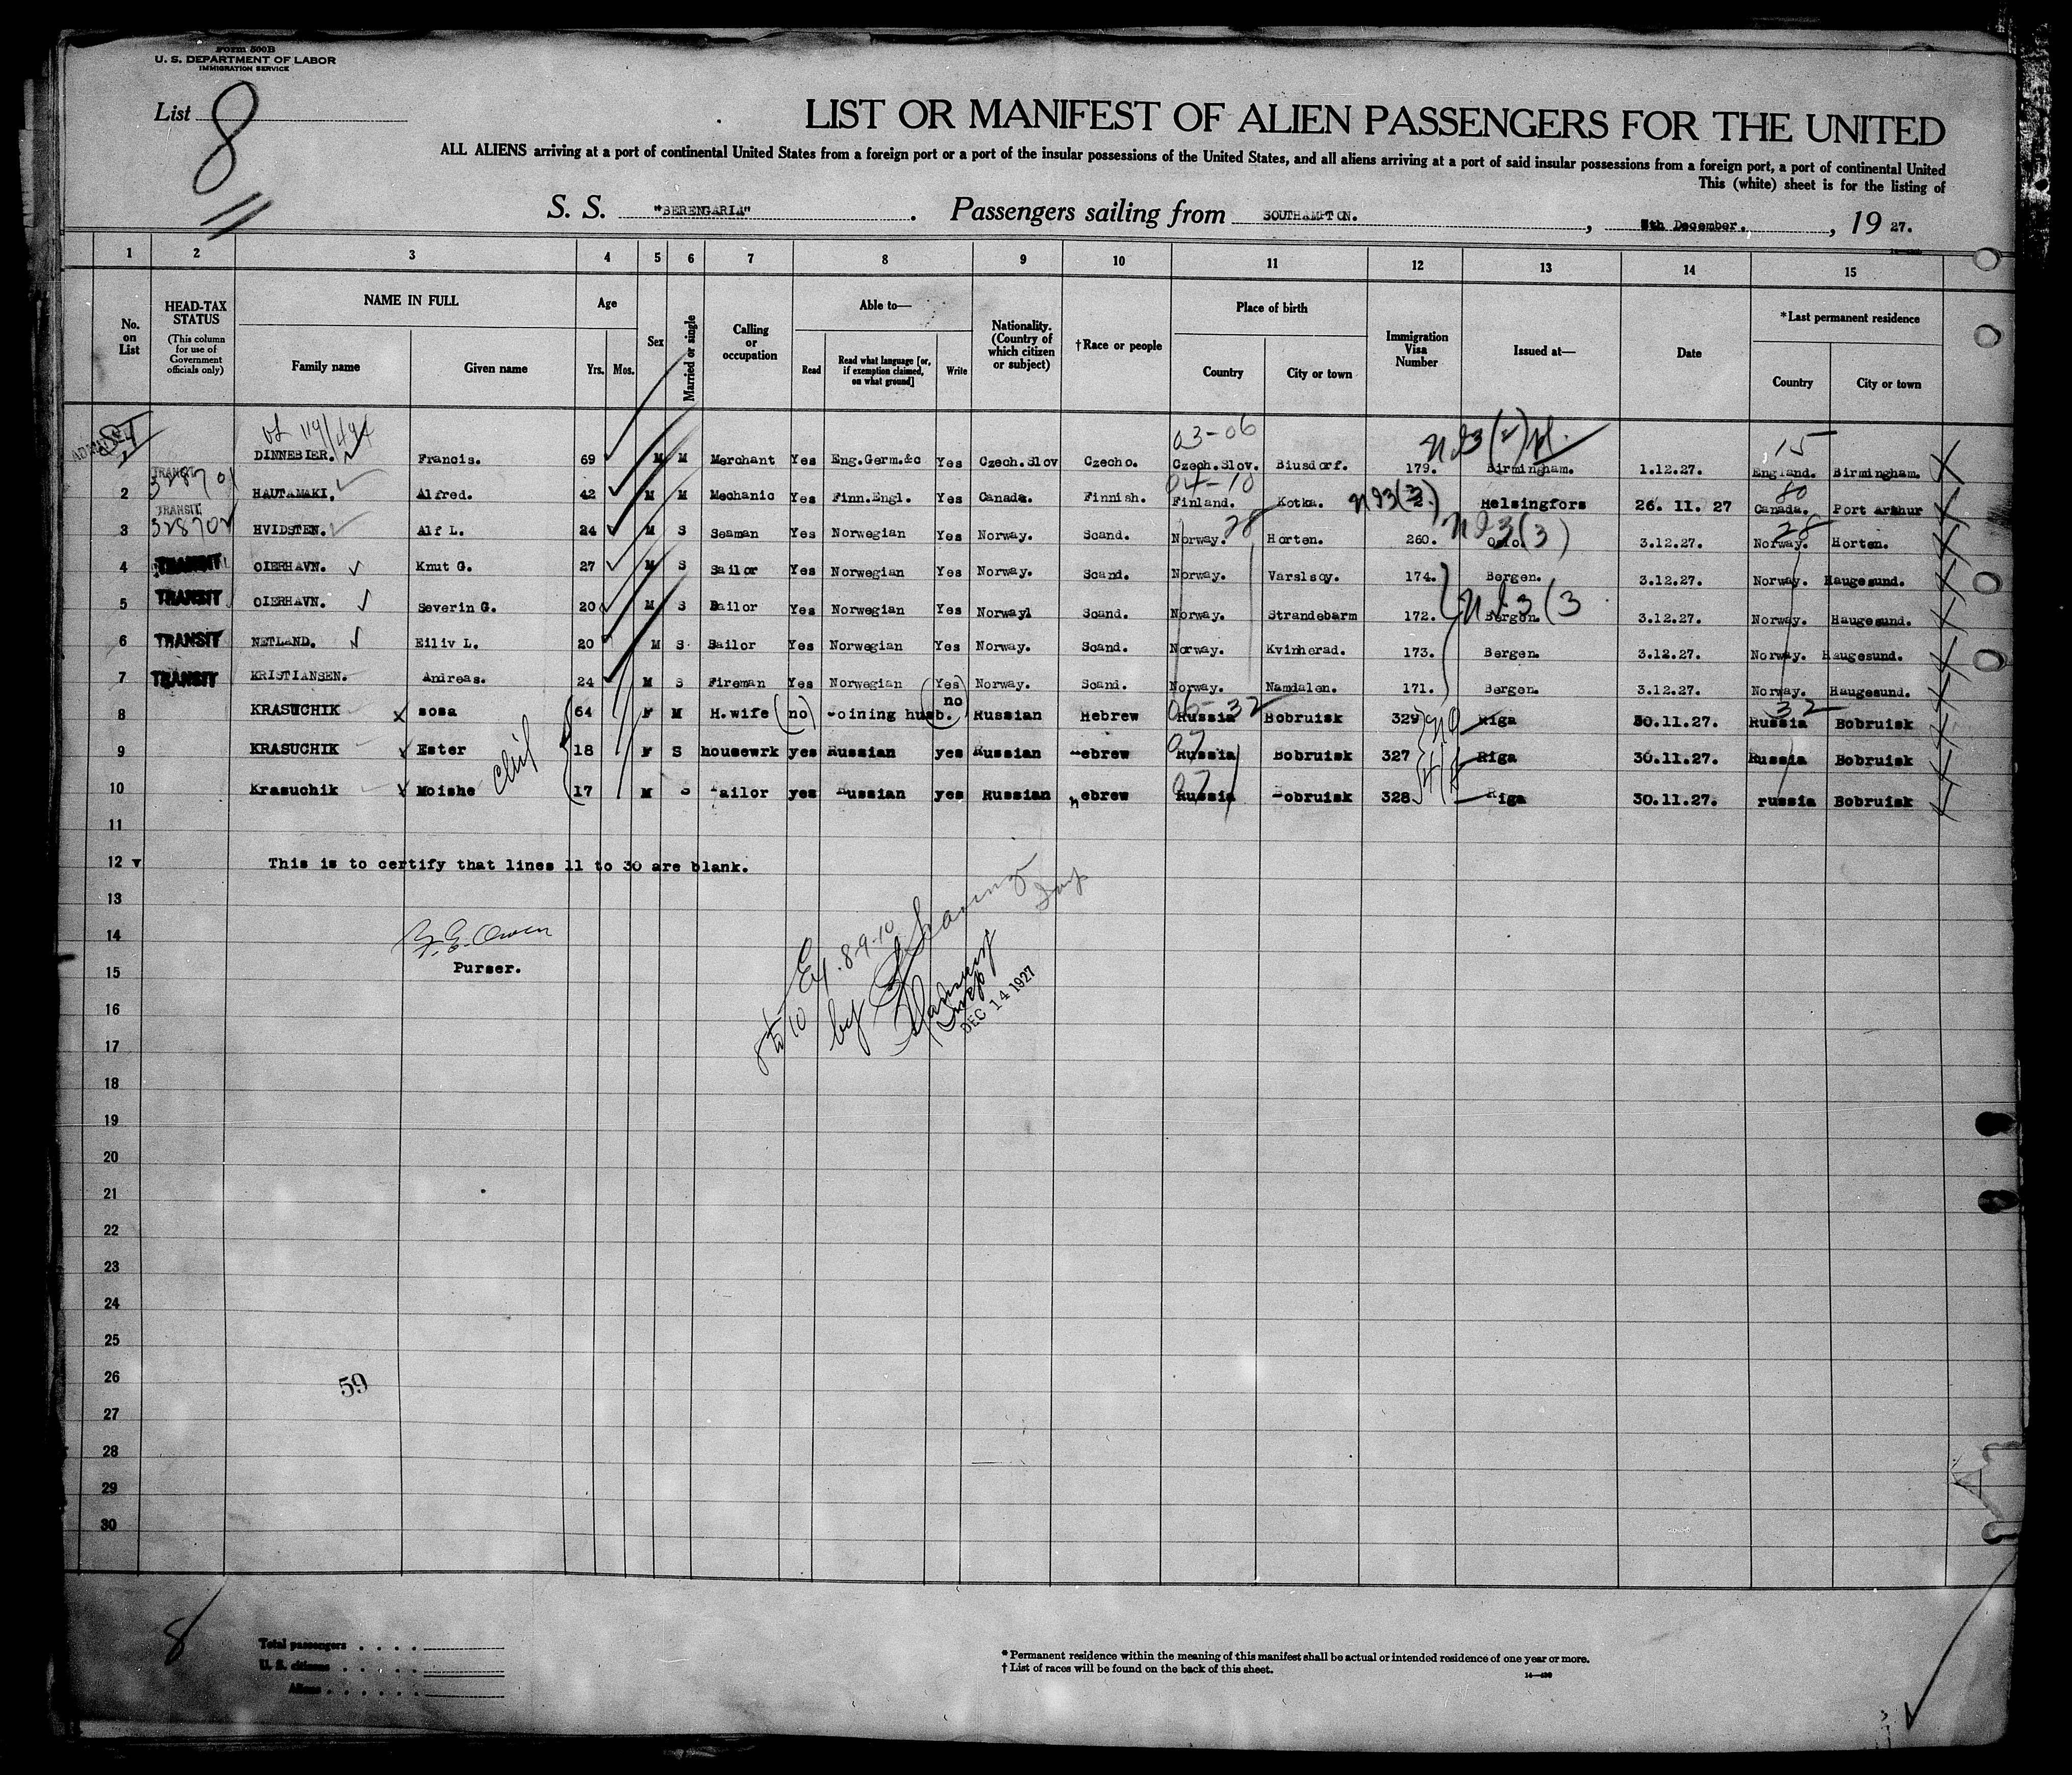 Form 500B
U. S. DEPARTMENT OF LABOR
IMMIGRATION SERVICE
List 8
LIST OR MANIFEST OF ALIEN PASSENGERS FOR THE UNITED
ALL ALIENS arriving at a port of continental United States from a foreign port or a port of the insular possessions of the United States, and all aliens arriving at a port of said insular possessions from a foreign port, a port of continental United
This (white) sheet is for the listing of
S. S. "BERENGARIA". Passengers sailing from SOUTHAMPTON., 5th December., 19 27.
1 2 3 4 5 6 7 8 9 10 11 12 13 14 15
No. on List
HEAD-TAX STATUS
(This column for use of Government officials only)
NAME IN FULL
Family name
Given name
Age
Yrs. Mos.
Sex
Married or single
Calling or occupation
Able to—
Read
Read what language [or, if exemption claimed, on what ground]
Write
Nationality. (Country of which citizen or subject)
†Race or people
Place of birth
Country
City or town
Immigration Visa Number
Issued at—
Date
*Last permanent residence
Country
City or town
03-06
15
DINNEBIER. Francis. 69 M M Merchant Yes Eng.Germ.&c Yes Czech.Slov Czecho. Czech.Slov. Biusdorf. 179. Birmingham. 1.12.27. England. Birmingham.
TRANSIT 328701
04-10
80
2 HAUTAMAKI. Alfred. 42 M M Mechanic Yes Finn.Engl. Yes Canada. Finnish. Finland. Kotka. Helsingfors 26. 11. 27 Canada. Port Arthur
TRANSIT 328702
28
28
3 HVIDSTEN. Alf L. 24 M S Seaman Yes Norwegian Yes Norway. Scand. Norway. Horten. 260. Oslo. 3.12.27. Norway. Horten.
4 TRANSIT OIERHAVN. Knut G. 27 M S Sailor Yes Norwegian Yes Norway. Scand. Norway. Varslsoy. 174. Bergen. 3.12.27. Norway. Haugesund.
5 TRANSIT OIERHAVN. Severin G. 20 M S Sailor Yes Norwegian Yes Norwayl Scand. Norway. Strandebarm 172. Bergen. 3.12.27. Norway. Haugesund.
6 TRANSIT NETLAND. Eiliv L. 20 M S Sailor Yes Norwegian Yes Norway. Scand. Norway. Kvinherad. 173. Bergen. 3.12.27. Norway. Haugesund.
7 TRANSIT KRISTIANSEN. Andreas. 24 M S Fireman Yes Norwegian (Yes) Norway. Scand. Norway. Namdalen. 171. Bergen. 3.12.27. Norway. Haugesund.
no
06-32
32
8 KRASUCHIK sosa 64 F M H.wife (no) -oining husb. Russian Hebrew Russia Bobruisk 329 Riga 30.11.27. Russia Bobruisk
9 KRASUCHIK Ester 18 F S housewrk yes Russian yes Russian -ebrew Russia Bobruisk 327 Riga 30.11.27. Russia Bobruisk
10 Krasuchik Moishe 17 M S Tailor yes Russian yes Russian Hebrew Russia -obruisk 328 Riga 30.11.27. russia Bobruisk
11
12 This is to certify that lines 11 to 30 are blank.
13
14
Owen
15 Purser.
Ex. 8-9-10
by
DEC 14 1927
16
17
18
19
20
21
22
23
24
25
26
59
27
28
29
30
8
Total passengers
U. S. citizens
Aliens
*Permanent residence within the meaning of this manifest shall be actual or intended residence of one year or more.
†List of races will be found on the back of this sheet.